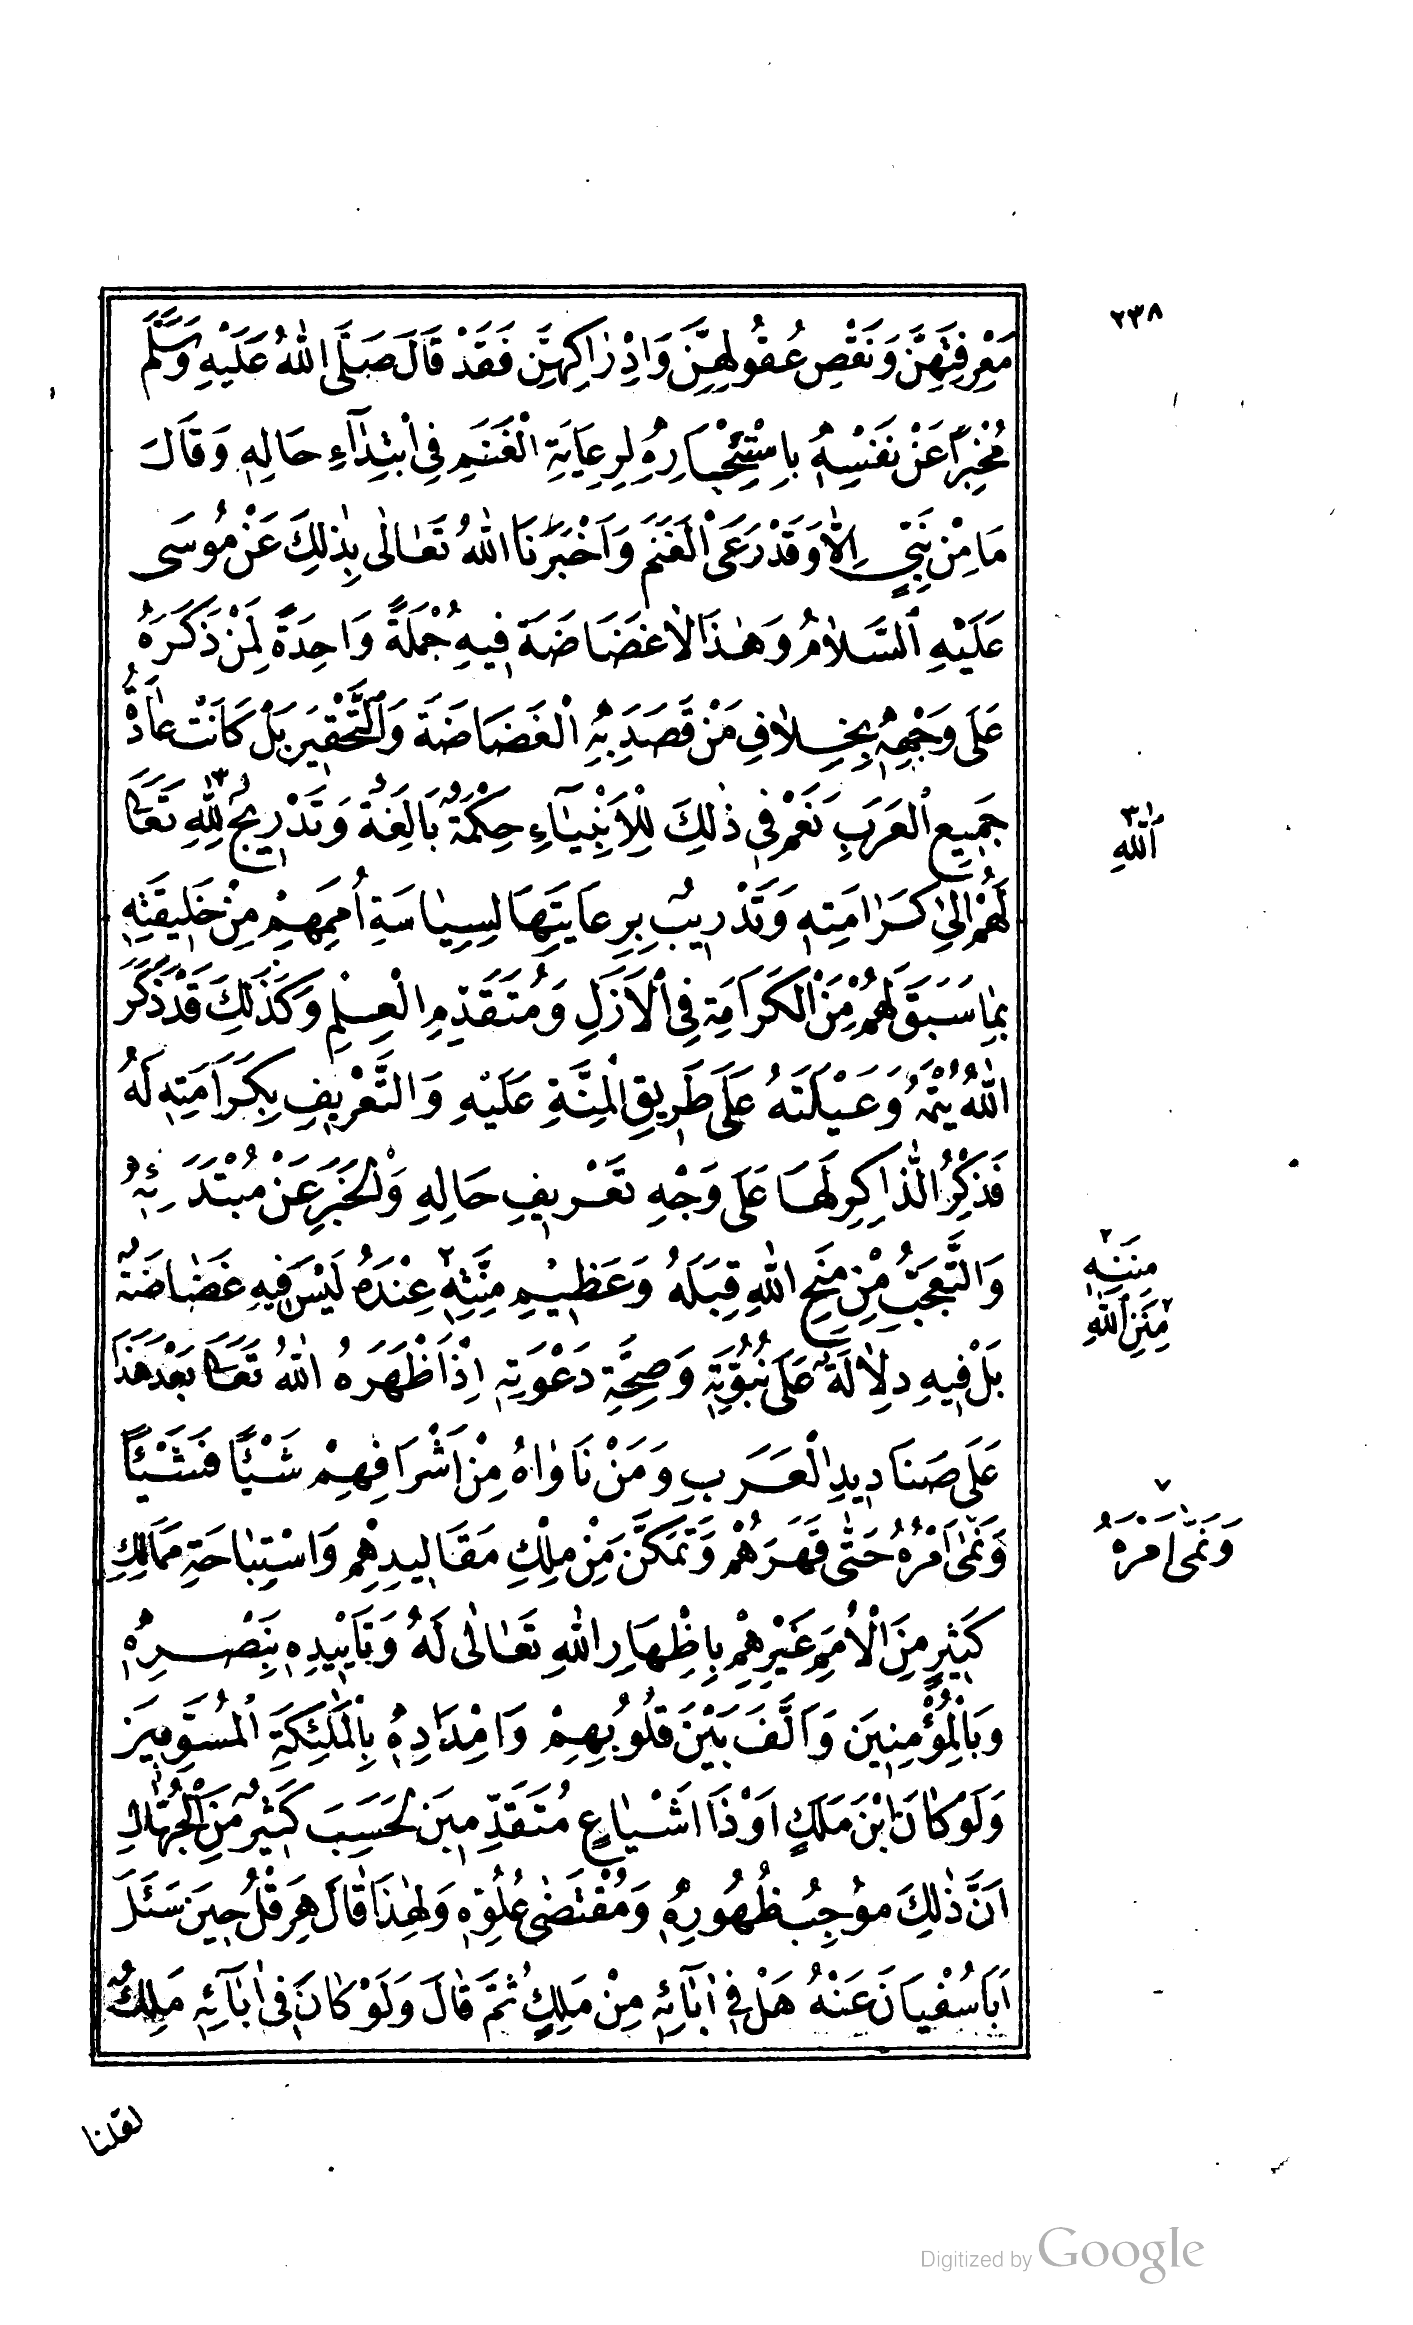 ٢٣٨
مَعْرِفَتِهِنَّ وَنَقْصِ عُقُولِهِنَّ وَاِدْرَاكِهِنَّ فَقَدْ قَالَ صَلَّى اللّٰهُ عَلَيْهِ وَسَلَّمَ
مُخْبِرًا عَنْ نَفْسِهِ بِاسْتِئْجَارِهِ لِرِعَايَةِ الْغَنَمِ فِى ابْتِدَآءِ حَالِهِ وَقَالَ
مَا مِنْ نَبِيٍّ اِلَّا وَقَدْ رَعَى الْغَنَمَ وَاَخْبَرَنَا اللّٰهُ تَعَالٰى بِذٰلِكَ عَنْ مُوسٰى
عَلَيْهِ السَّلَامُ وَهٰذَا لَا غَضَاضَةَ فِيهِ جُمْلَةً وَاحِدَةً لِمَنْ ذَكَرَهُ
عَلَى وَجْهِهِ بِخِلَافِ مَنْ قَصَدَ بِهِ الْغَضَاضَةَ وَالتَّحْقِيرَ بَلْ كَانَتْ عَادَةُ
جَمِيعِ الْعَرَبِ نَعَمْ فِى ذٰلِكَ لِلْاَنْبِيَآءِ حِكْمَةٌ بَالِغَةٌ وَتَدْرِيجٌ لِلّٰهِ٣ تَعَالٰى
اللّٰهِ٣
لَهُمْ اِلٰى كَرَامَتِهِ وَتَدْرِيبٌ بِرِعَايَتِهَا لِسِيَاسَةِ اُمَمِهِمْ مِنْ خَلِيقَتِهِ
بِمَا سَبَقَ لَهُمْ مِنَ الْكَرَامَةِ فِى الْاَزَلِ وَمُتَقَدِّمِ الْعِلْمِ وَكَذٰلِكَ قَدْ ذَكَرَ
اللّٰهُ يُتْمَهُ وَعَيْلَتَهُ عَلَى طَرِيقِ الْمِنَّةِ عَلَيْهِ وَالتَّعْرِيفِ بِكَرَامَتِهِ لَهُ
فَذِكْرُ الذَّاكِرِ لَهَا عَلَى وَجْهِ تَعْرِيفِ حَالِهِ وَالْخَبَرِ عَنْ مُبْتَدَئِهِ
وَالتَّعَجُّبُ مِنْ مِنَحِ اللّٰهِ قِبَلَهُ وَعَظِيمِ مِنَّتِهِ٢ عِنْدَهُ لَيْسَ فِيهِ غَضَاضَةٌ
٢ مِنَنِهِ
٢ مِنَنِ اللّٰهِ
بَلْ فِيهِ دِلَالَةٌ عَلَى نُبُوَّتِهِ وَصِحَّةِ دَعْوَتِهِ اِذْ اَظْهَرَهُ اللّٰهُ تَعَالٰى بَعْدَ هٰذَا
عَلَى صَنَادِيدِ الْعَرَبِ وَمَنْ نَاوَاهُ مِنْ اَشْرَافِهِمْ شَيْئًا فَشَيْئًا
وَنَمٰى اَمْرُهُ حَتّٰى قَهَرَهُمْ وَتَمَكَّنَ مِنْ مِلْكِ مَقَالِيدِهِمْ وَاسْتِبَاحَةِ مَمَالِكِ
٧ وَنَمَّى اَمْرَهُ
كَثِيرٍ مِنَ الْاُمَمِ غَيْرِهِمْ بِاِظْهَارِ اللّٰهِ تَعَالٰى لَهُ وَتَاْيِيدِهِ بِنَصْرِهِ
وَبِالْمُؤْمِنِينَ وَاَلَّفَ بَيْنَ قُلُوبِهِمْ وَاِمْدَادِهِ بِالْمَلٰئِكَةِ الْمُسَوِّمِينَ
وَلَوْ كَانَ ابْنَ مَلِكٍ اَوْ ذَا اَشْيَاعٍ مُتَقَدِّمِينَ لَحَسِبَ كَثِيرٌ مِنَ الْجُهَّالِ
اَنَّ ذٰلِكَ مُوجِبُ ظُهُورِهِ وَمُقْتَضٰى عُلُوِّهِ وَلِهٰذَا قَالَ هِرَقْلُ حِينَ سَئَلَ
اَبَا سُفْيَانَ عَنْهُ هَلْ فِى اٰبَائِهِ مِنْ مَلِكٍ ثُمَّ قَالَ وَلَوْ كَانَ فِى اٰبَآئِهِ مَلِكٌ
لقلنا
Digitized by Google